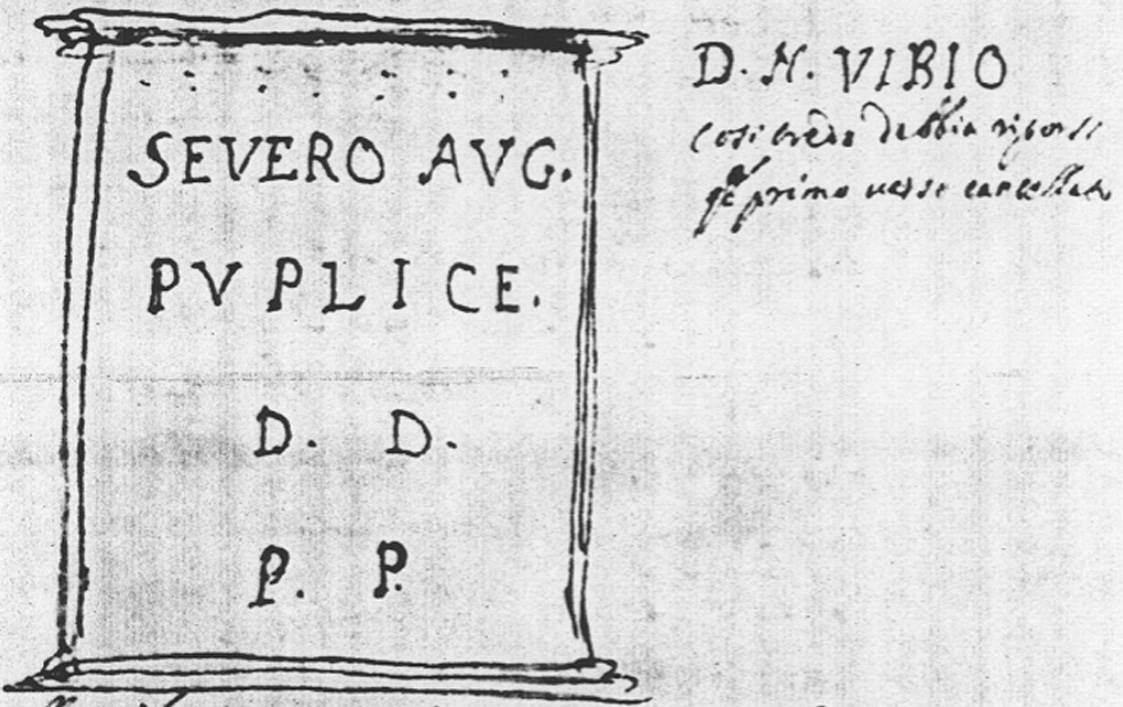 SEVERO AVG.
PVPLICE.
D. D.
P. P.
D. N. VIBIO
così credo debbia riporsi
primo verso cancellato